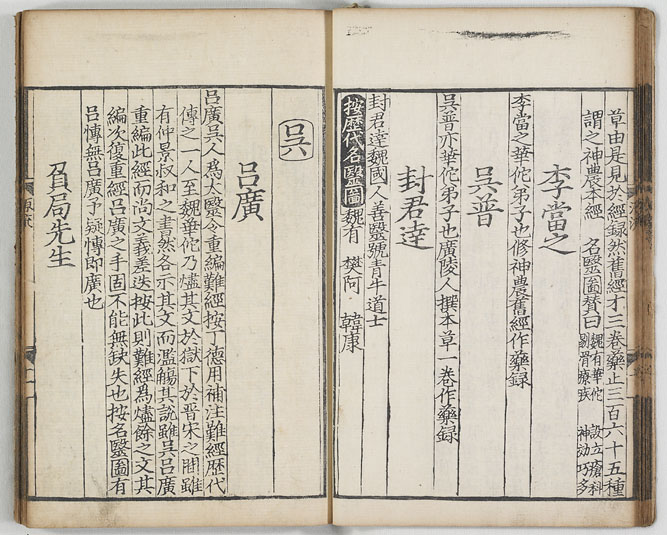 草由是見於經録然舊經才三卷藥止三百六十五種
謂之神農本經 名醫圖賛曰 魏有華佗 設立瘡科 剔骨療疾 神効巧多
李當之
李當之華佗弟子也修神農舊經作藥録
吴普
吴普亦華佗弟子也廣陵人撰本草一卷作藥録
封君達
封君達魏國人善醫號青牛道士
按歷代名醫圖魏有 樊阿 韓康
吕六
吕廣
吕廣吴人爲太醫令重編難經按丁德用補注難經歷代
傳之一人至魏華佗乃燼其文於獄下於晋宋之間雖
有仲景叔和之書然各示其文而濫觴其説雖吴吕廣
重編此經而尚文義差迭按此則難經爲燼餘之文其
編次復重經吕廣之手固不能無缺失也按名醫圖有
吕愽無吕廣予疑愽即廣也
負局先生